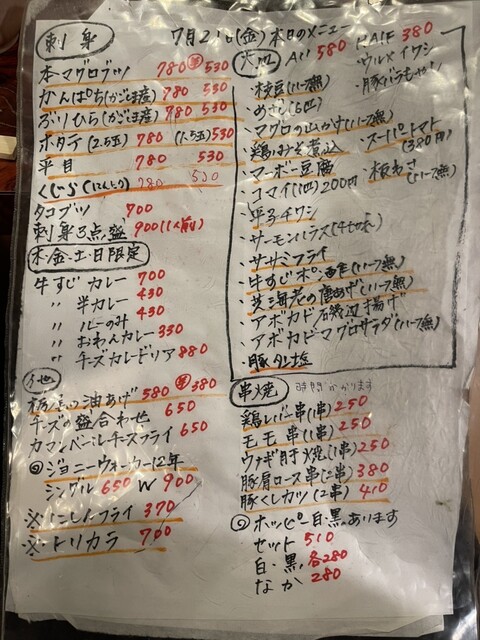 7月21日(金) 本日のメニュー
刺身
本マグロブツ 780 半 530
かんぱち(かごま産) 780 530
ぶりひら(かごま産) 780 530
ホタテ(2.5玉) 780 (1.5玉) 530
平目 780 530
くじら(にんにく) 780 530
タコブツ 700
刺身3点盛 900(1人前)
木・金・土・日限定
牛すじカレー 700
〃 半カレー 430
〃 ルーのみ 430
〃 おわんカレー 330
〃 チーズカレードリア 880
他
栃尾の油あげ 580 半 380
チーズの盛合わせ 650
カマンベールチーズフライ 650
◎ジョニーウォーカー12年
シングル 650 W 900
※にしんフライ 370
※トリカラ 700
ALL 580 HALF 380
・枝豆(ハーフ無)
・ウルメイワシ
・めざし(5匹)
・豚バラもやし
・マグロの山かけ(ハーフ無)
・鶏みそ煮込
・スーパートマト(380円)
・マーボー豆腐
・コマイ(1匹)200円
・板わさ(ハーフ無)
・サーモンハラス
・ササミフライ
・牛すじポン酢(ハーフ無)
・芝海老の唐あげ(ハーフ無)
・アボカド磯辺揚げ
・アボカドマグロサラダ(ハーフ無)
・豚タン塩
串焼 時間かかります
鶏レバー串(1串) 250
モモ串(1串) 250
ウナギ肝焼(1串) 250
豚肩ロース串(2串) 380
豚くしカツ(2串) 410
◎ホッピー白・黒あります
セット 510
白・黒 各280
なか 280